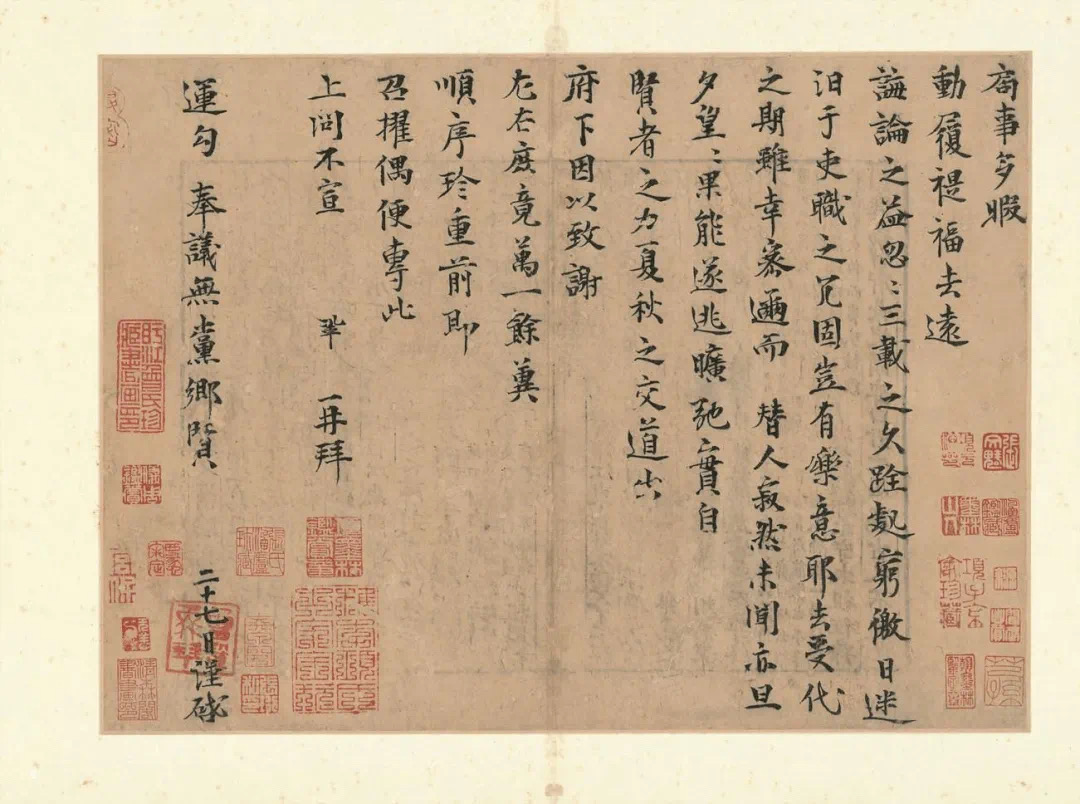 局事多暇
動履禔福去遠
誨論之益忽〻三載之久跧處窮徼日迷
汩于吏職之冗固豈有樂意耶去受代
之期雖幸密邇而 替人寂然未聞亦旦
夕望〻果能遂逃曠弛實自
賢者之力夏秋之交道出
府下因以致謝
左右庶竟萬一餘冀
順序珍重前即
召擢偶便專此
上問不宣 鞏 再拜
運勾 奉議無黨鄉賢
二十七日謹啟
項子京家珍藏